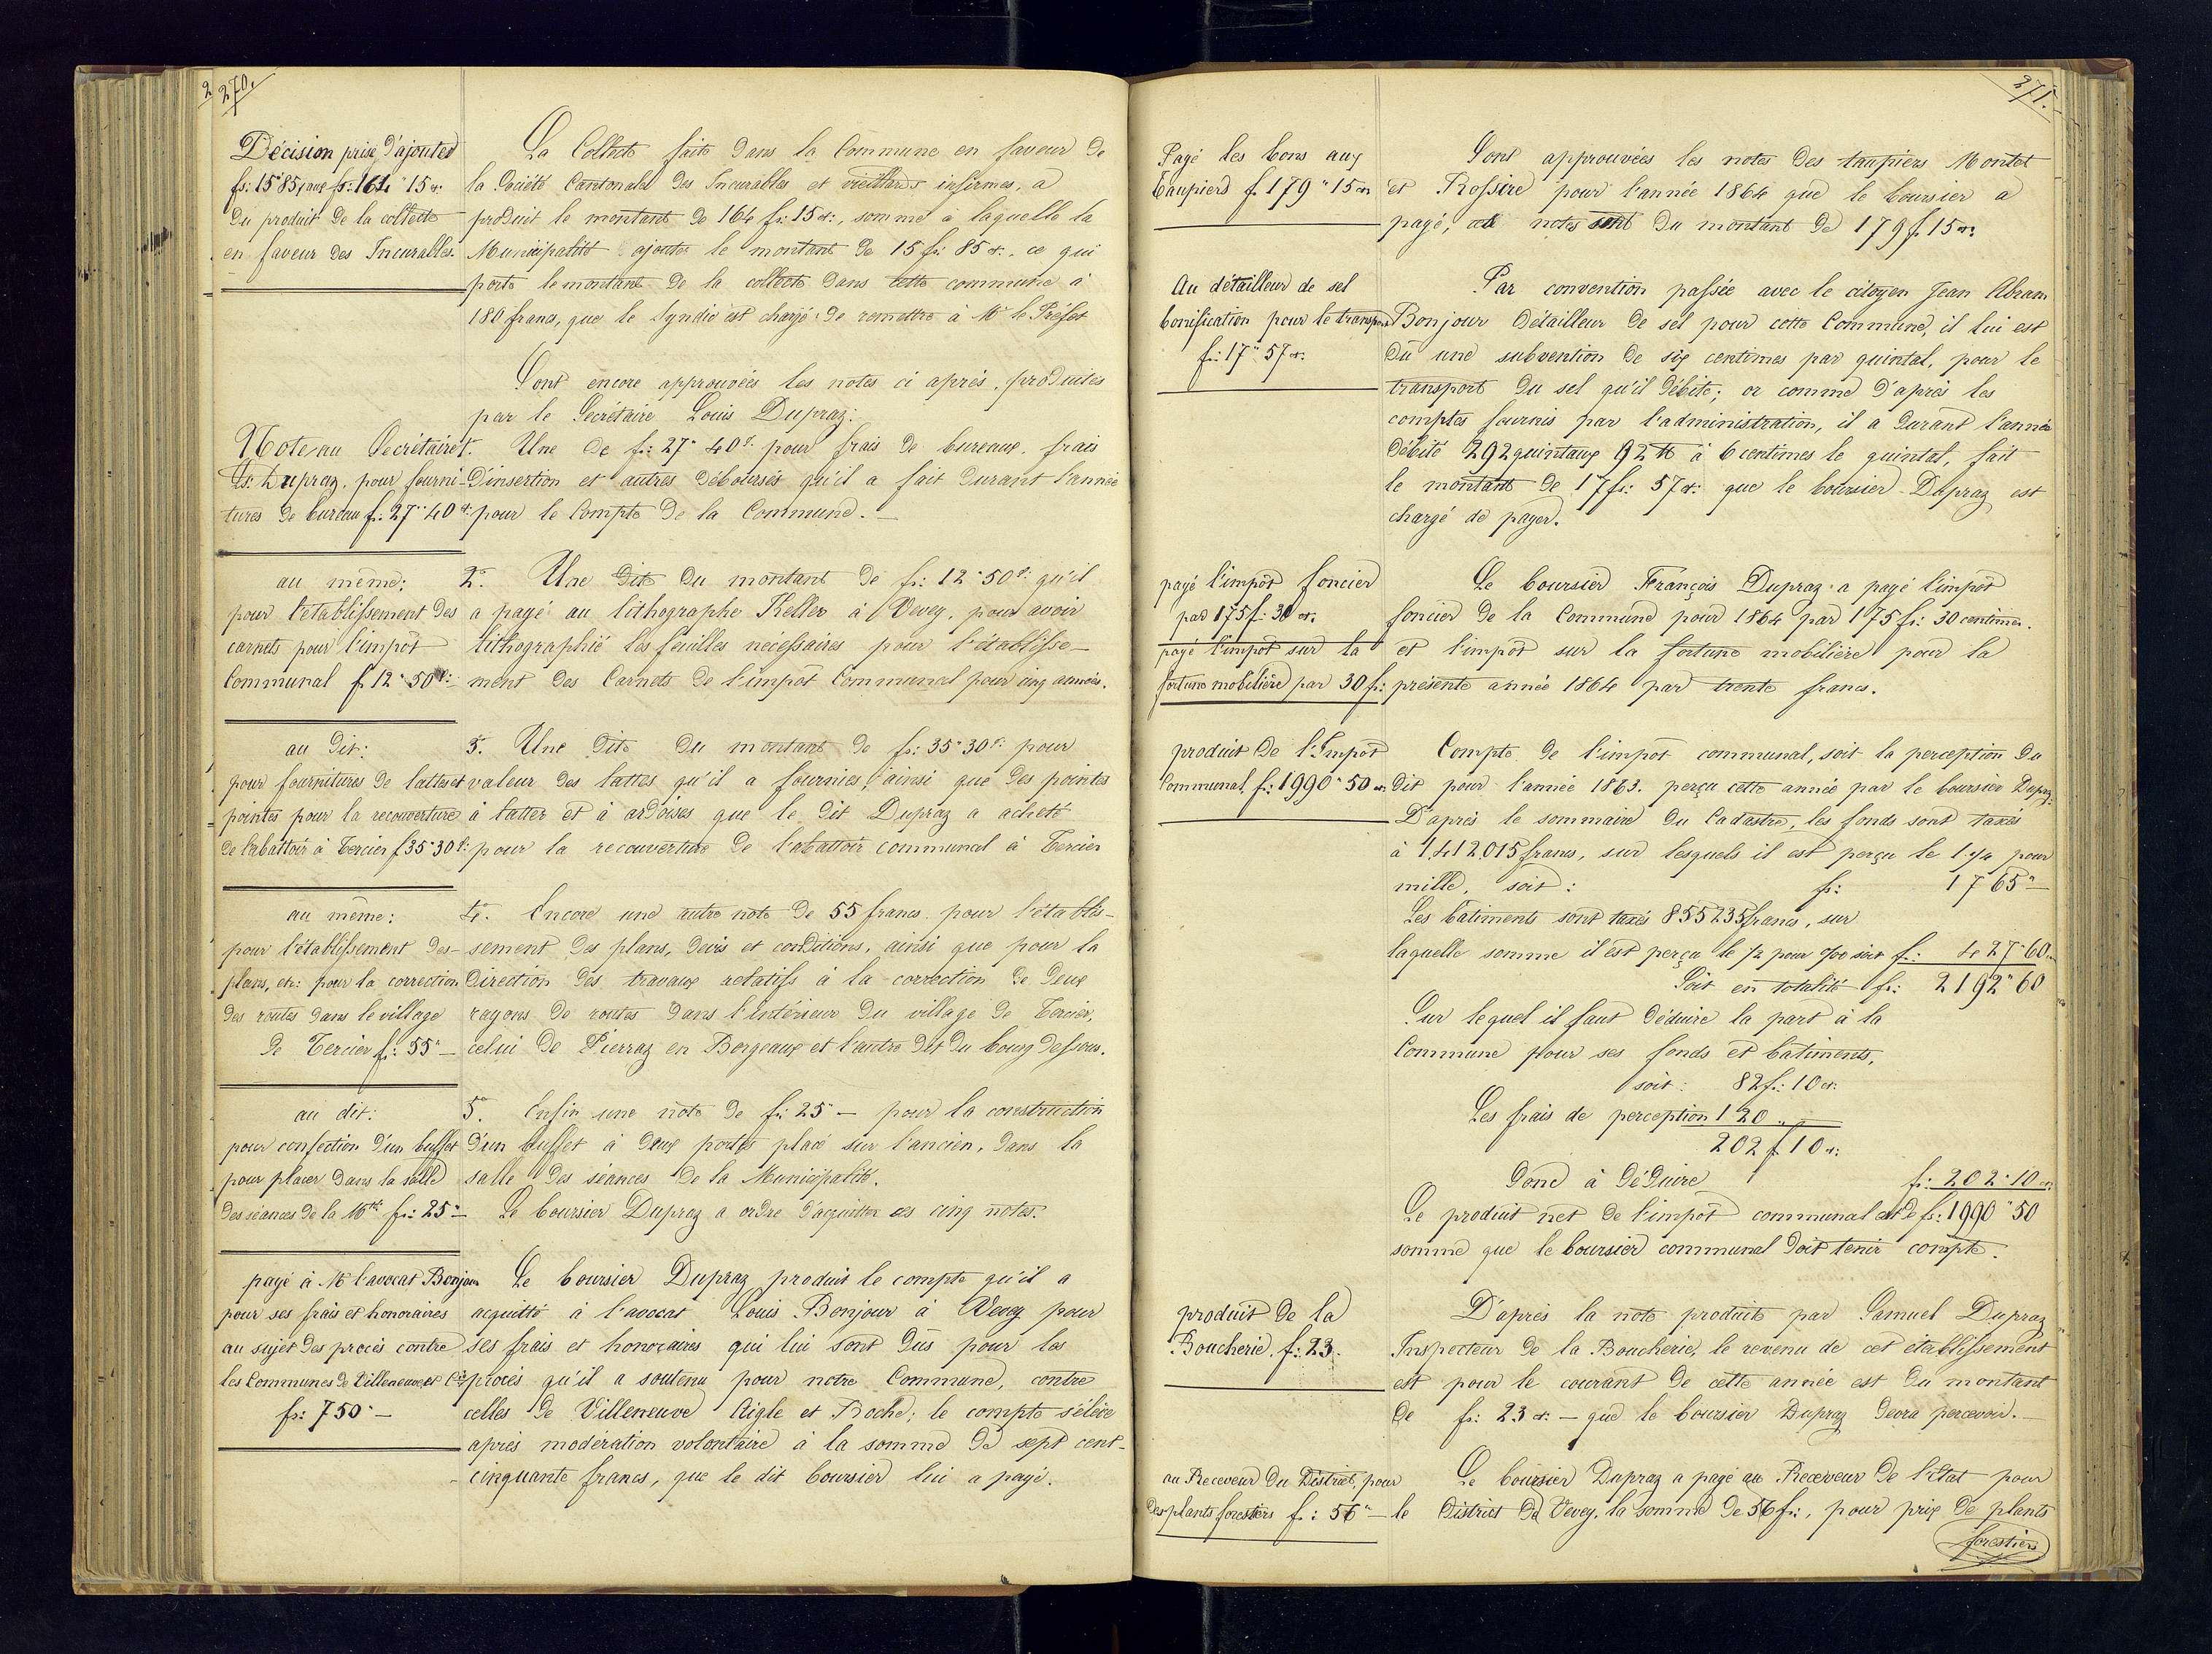 270.
Décision prise d'ajouter
fs: 15"85 aux fs: 164"15 ct.
du produit de la collecte
en faveur des Incurables.
La Collecte faite dans la Commune en faveur de
la Société Cantonale des Incurables et vieillards infirmes, a
produit le montant de 164 fr: 15 ct:, somme à laquelle la
Municipalité ajoute le montant de 15 fr: 85 ct:, ce qui
porte le montant de la collecte dans cette commune à
180 francs, que le Syndic est chargé de remettre à Mr le Préfet
Sont encore approuvées les notes ci après, produites
par le Secrétaire Louis Dupraz:
Note au Secrétaire
Ls. Dupraz, pour fourni-
tures de bureau f. 27"40 ct.
1°. Une de fr: 27"40 ct. pour frais de bureaux, frais
d'insertion et autres déboursés qu'il a fait durant l'année
pour le Compte de la Commune. —
au même:
pour l'établissement des
carnets pour l'impôt
Communal f. 12"50 ct:
2°. Une dite du montant de fr: 12"50 ct. qu'il
a payé au lithographe Keller à Vevey, pour avoir
lithographié les feuilles nécessaires pour l'établisse-
ment des Carnets de l'impôt Communal pour cinq années.
au dit:
pour fournitures de lattes et
pointes pour la recouverture
de l'abattoir à Tercier f. 35"30 ct:
3°. Une dite du montant de fr: 35"30 ct. pour
valeur des lattes qu'il a fournies, ainsi que des pointes
à latter et à ardoises que le dit Dupraz a acheté
pour la recouverture de l'abattoir communal à Tercier
au même:
pour l'établissement des
plans, etc: pour la correction
des routes dans le village
de Tercier fr: 55" —
4°. Encore une autre note de 55 francs pour l'établis-
sement des plans, devis et conditions, ainsi que pour la
direction des travaux relatifs à la correction de deux
rayons de routes dans l'intérieur du village de Tercier,
celui de Pierraz en Borgeaux et l'autre dit du bourg dessous.
au dit:
pour confection d'un buffet
pour placer dans la salle
des séances de la Mté fr: 25" —
5°. Enfin une note de fr: 25" — pour la construction
d'un buffet à deux portes placé sur l'ancien, dans la
salle des séances de la Municipalité.
Le boursier Dupraz a ordre d'acquitter ces cinq notes.
payé à Mr l'avocat Bonjour
pour ses frais et honoraires
au sujet des procès contre
les Communes de Villeneuve et Cie
fr: 750" —
Le boursier Dupraz produit le compte qu'il a
acquitté à l'avocat Louis Bonjour à Vevey pour
ses frais et honoraires qui lui sont dûs pour les
procès qu'il a soutenu pour notre Commune, contre
celles de Villeneuve Aigle et Roche; le compte s'élève
après modération volontaire à la somme de sept cent-
cinquante francs, que le dit boursier lui a payé.
271.
Payé les bons aux
taupiers f. 179"15 ct
Sont approuvées les notes des taupiers Montet
et Rossire pour l'année 1864 que le boursier a
payé; notes sont du montant de 179 f. 15 ct:
Au détailleur de sel
bonification pour le transport
fr: 17"57 ct.
Par convention passée avec le citoyen Jean Abram
Bonjour détailleur de sel pour cette Commune, il lui est
dû une subvention de six centimes par quintal, pour le
transport du sel qu'il débite; or comme d'après les
comptes fournis par l'administration, il a durant l'année
débité 292 quintaux 92 ℔ à 6 centimes le quintal, fait
le montant de 17 fr: 57 ct: que le boursier Dupraz est
chargé de payer.
payé l'impôt foncier
par 175 f: 30 ct.
payé l'impôt sur la
fortune mobilière par 30 fr:
Le boursier François Dupraz a payé l'impôt
foncier de la Commune pour 1864 par 175 fr: 30 centimes.
et l'impôt sur la fortune mobilière pour la
présente année 1864 par trente francs.
produit de l'Impôt
Communal fr: 1990"50 ct.
Compte de l'impôt communal, soit la perception du
dit pour l'année 1863. perçu cette année par le boursier Dupraz.
D'après le sommaire du Cadastre, les fonds sont taxés
à 1,412,015 francs, sur lesquels il est perçu le 1 1/4 pour
mille, soit: fr: 1765" —
Les bâtiments sont taxés 855235 francs, sur
laquelle somme il est perçu le 1/2 pour 0/00 soit f: 427"60
Soit en totalité fr: 2192"60
Sur lequel il faut déduire la part à la
Commune pour ses fonds et bâtiments,
soit: 82 f: 10 ct:
Les frais de perception 120 "
202 f 10 ct:
Donc à déduire fr: 202"10 ct.
Le produit net de l'impôt communal est de fr: 1990"50
somme que le boursier communal doit tenir compte.
produit de la
Boucherie. f: 23.
D'après la note produite par Samuel Dupraz
Inspecteur de la Boucherie, le revenu de cet établissement
est pour le courant de cette année est du montant
de fr: 23 ct: — que le boursier Dupraz devra percevoir. —
au Receveur du District, pour
des plants forestiers f.: 56" —
Le boursier Dupraz a payé au Receveur de l'Etat pour
le District de Vevey, la somme de 56 fr:, pour prix de plants
forestiers